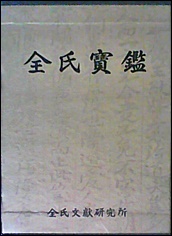 全氏寶鑑
全氏文獻研究所